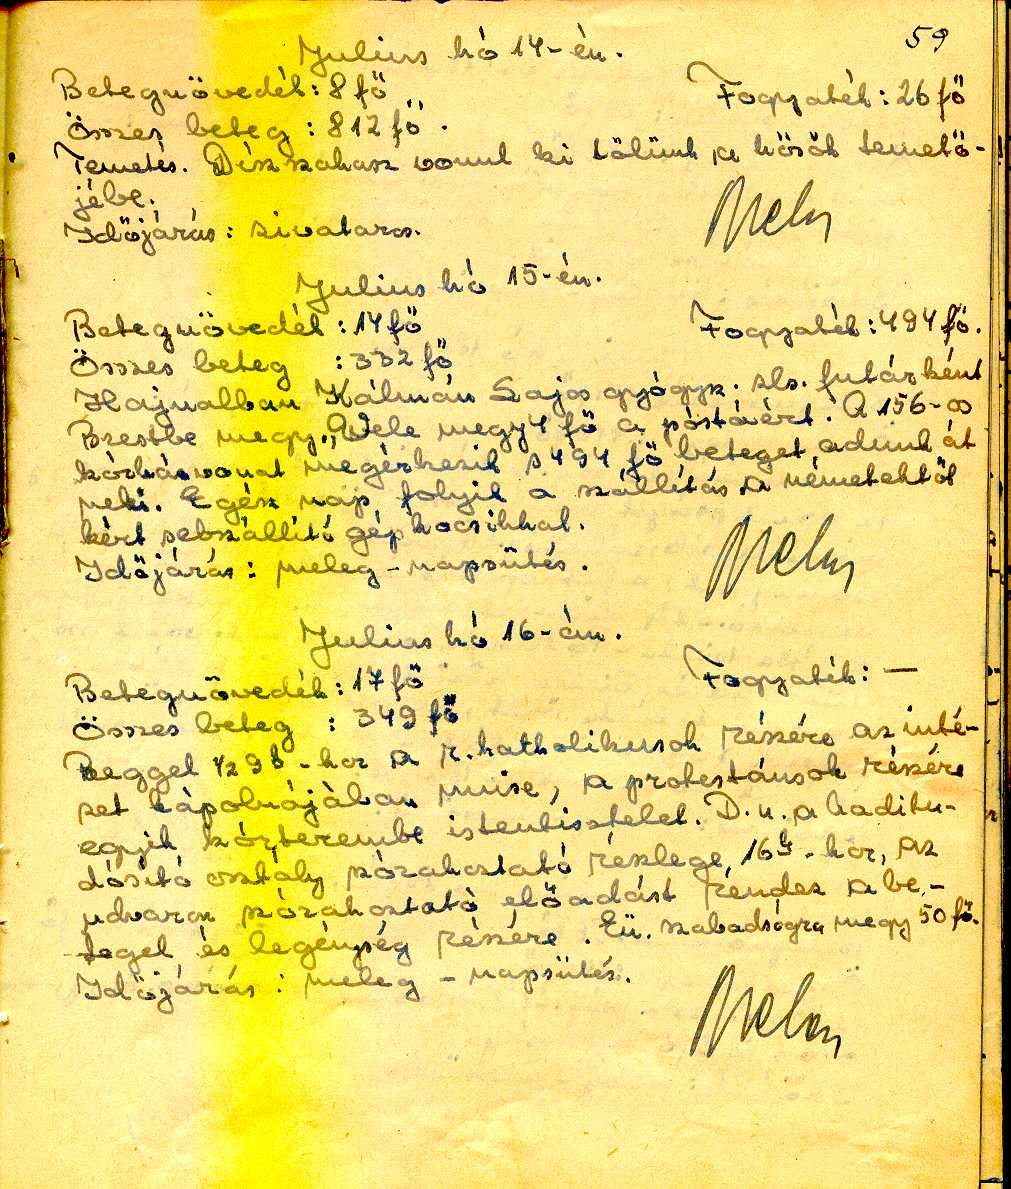 59
Julius hó 14-én.
Betegnövedék: 8 fő Fogyaték: 26 fő
Összes beteg : 812 fő.
Temetés. Díszszakasz vonul ki tőlünk a hősök temető-
jébe.
Időjárás: zivataros.
Julius hó 15-én.
Betegnövedék : 14 fő Fogyaték : 494 fő.
Összes beteg : 332 fő
Hajnalban Kálmán Lajos gyógysz. sls. futárként
Bresztbe megy. Vele megy 4 fő a póstáért. A 156-os
kórházvonat megérkezik s 494 fő beteget adunk át
neki. Egész nap folyik a szállítás a németektől
kért sebszállító gépkocsikkal.
Időjárás : meleg - napsütés.
Julius hó 16-án.
Betegnövedék : 17 fő Fogyaték : —
Összes beteg : 349 fő
Reggel 1/2 9h-kor a r. katholikusok részére az inté-
zet kápolnájában mise, a protestánsok részére
egyik kórterembe istentisztelet. D.u. a haditu-
dósító osztály szórakoztató részlege, 16h-kor, az
udvaron szórakoztató előadást rendez a be-
tegek és legénység részére. Eü. szabadságra megy 50 fő.
Időjárás : meleg - napsütés.